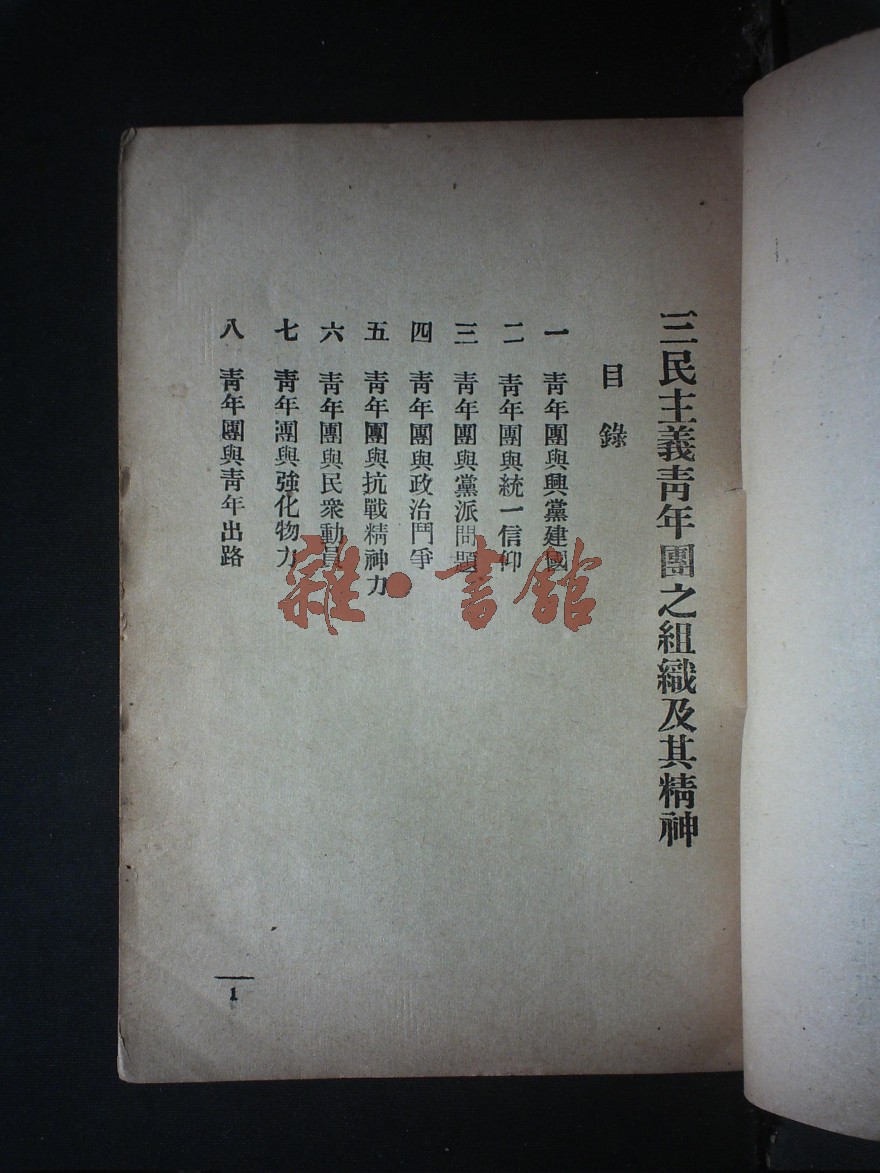 三民主義青年團之組織及其精神
目錄
一 青年團與興黨建國
二 青年團與統一信仰
三 青年團與黨派問題
四 青年團與政治鬥爭
五 青年團與抗戰精神力
六 青年團與民衆動員
七 青年團與強化物力
八 青年團與青年出路
1
雜·書館